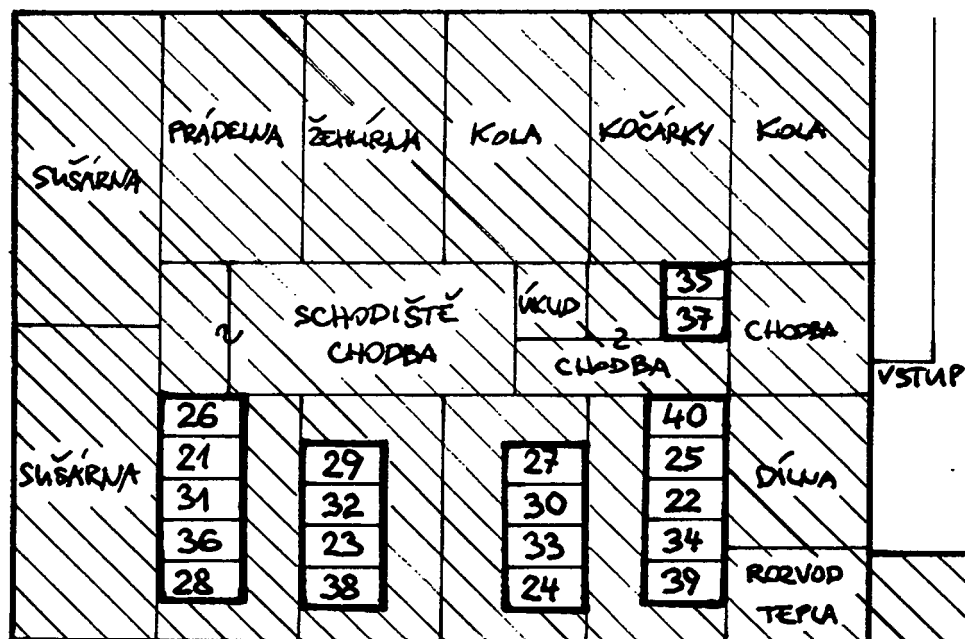 PRÁDELNA
ŽEHLÍRNA
KOLA
KOČÁRKY
KOLA
SUŠÁRNA
SCHODIŠTĚ
CHODBA
ÚKLID
35
37
CHODBA
CHODBA
VSTUP
SUŠÁRNA
26
21
31
36
28
29
32
23
38
27
30
33
24
40
25
22
34
39
DÍLNA
ROZVOD
TEPLA